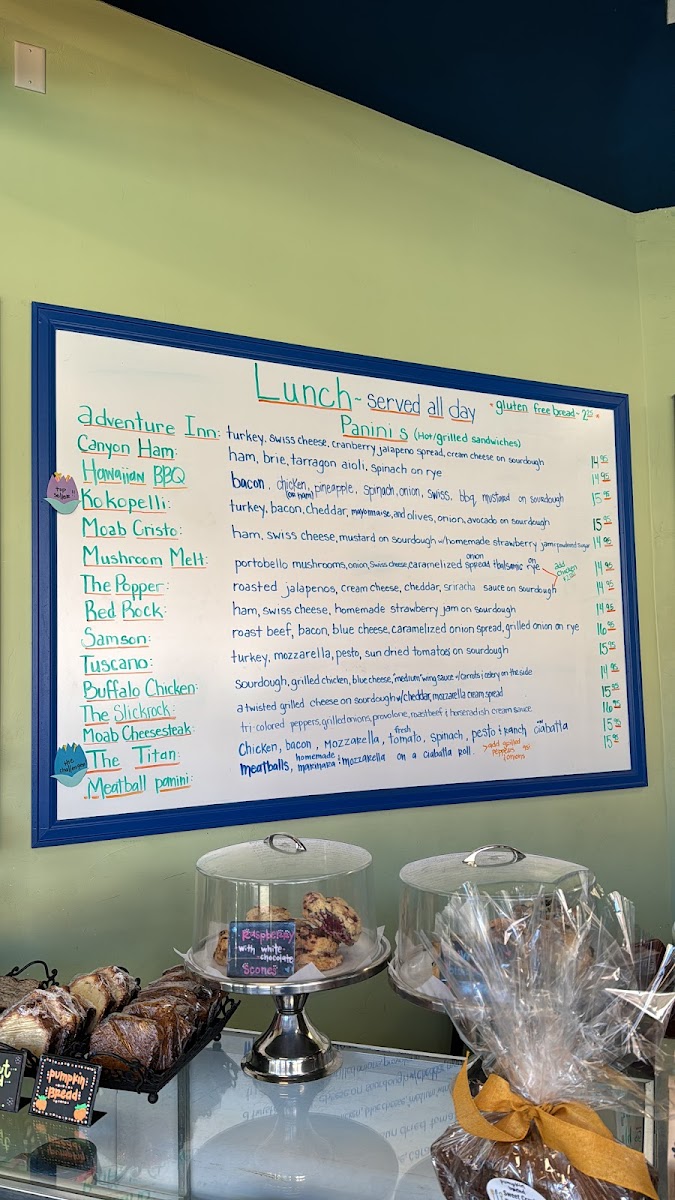 Lunch - served all day
• gluten free bread - 2.25 •
Paninis (Hot/grilled sandwiches)
Adventure Inn: turkey, swiss cheese, cranberry jalapeno spread, cream cheese on sourdough 14.95
Canyon Ham: ham, brie, tarragon aioli, spinach on rye 14.95
Hawaiian BBQ bacon, chicken, (or ham) pineapple, spinach, onion, swiss, bbq, mustard on sourdough 15.95
top seller!!
Kokopelli: turkey, bacon, cheddar, mayonnaise, and olives, onion, avocado on sourdough 15.95
Moab Cristo: ham, swiss cheese, mustard on sourdough w/homemade strawberry jam & powdered sugar 14.95
Mushroom Melt: portobello mushrooms, onion, swiss cheese, caramelized onion spread + balsamic on rye 14.95
add chicken
The Popper: roasted jalapenos, cream cheese, cheddar, sriracha sauce on sourdough 14.95
Red Rock: ham, swiss cheese, homemade strawberry jam on sourdough 14.95
Samson: roast beef, bacon, blue cheese, caramelized onion spread, grilled onion on rye 16.95
Tuscano: turkey, mozzarella, pesto, sun dried tomatoes on sourdough 15.95
Buffalo Chicken: sourdough, grilled chicken, blue cheese, "medium" wing sauce w/carrots & celery on the side 14.95
The Slickrock: a twisted grilled cheese on sourdough w/cheddar, mozzarella cream spread 15.95
Moab Cheesesteak: tri-colored peppers, grilled onions, provolone, roast beef & horseradish cream sauce 16.95
The Titan: Chicken, bacon, mozzarella, fresh tomato, spinach, pesto & ranch on ciabatta 15.95
the challenger
Meatball panini: meatballs, homemade marinara & mozzarella on a ciabatta roll 15.95
add grilled peppers & onions
Raspberry
with white-
chocolate
Scones
pumpkin
Bread